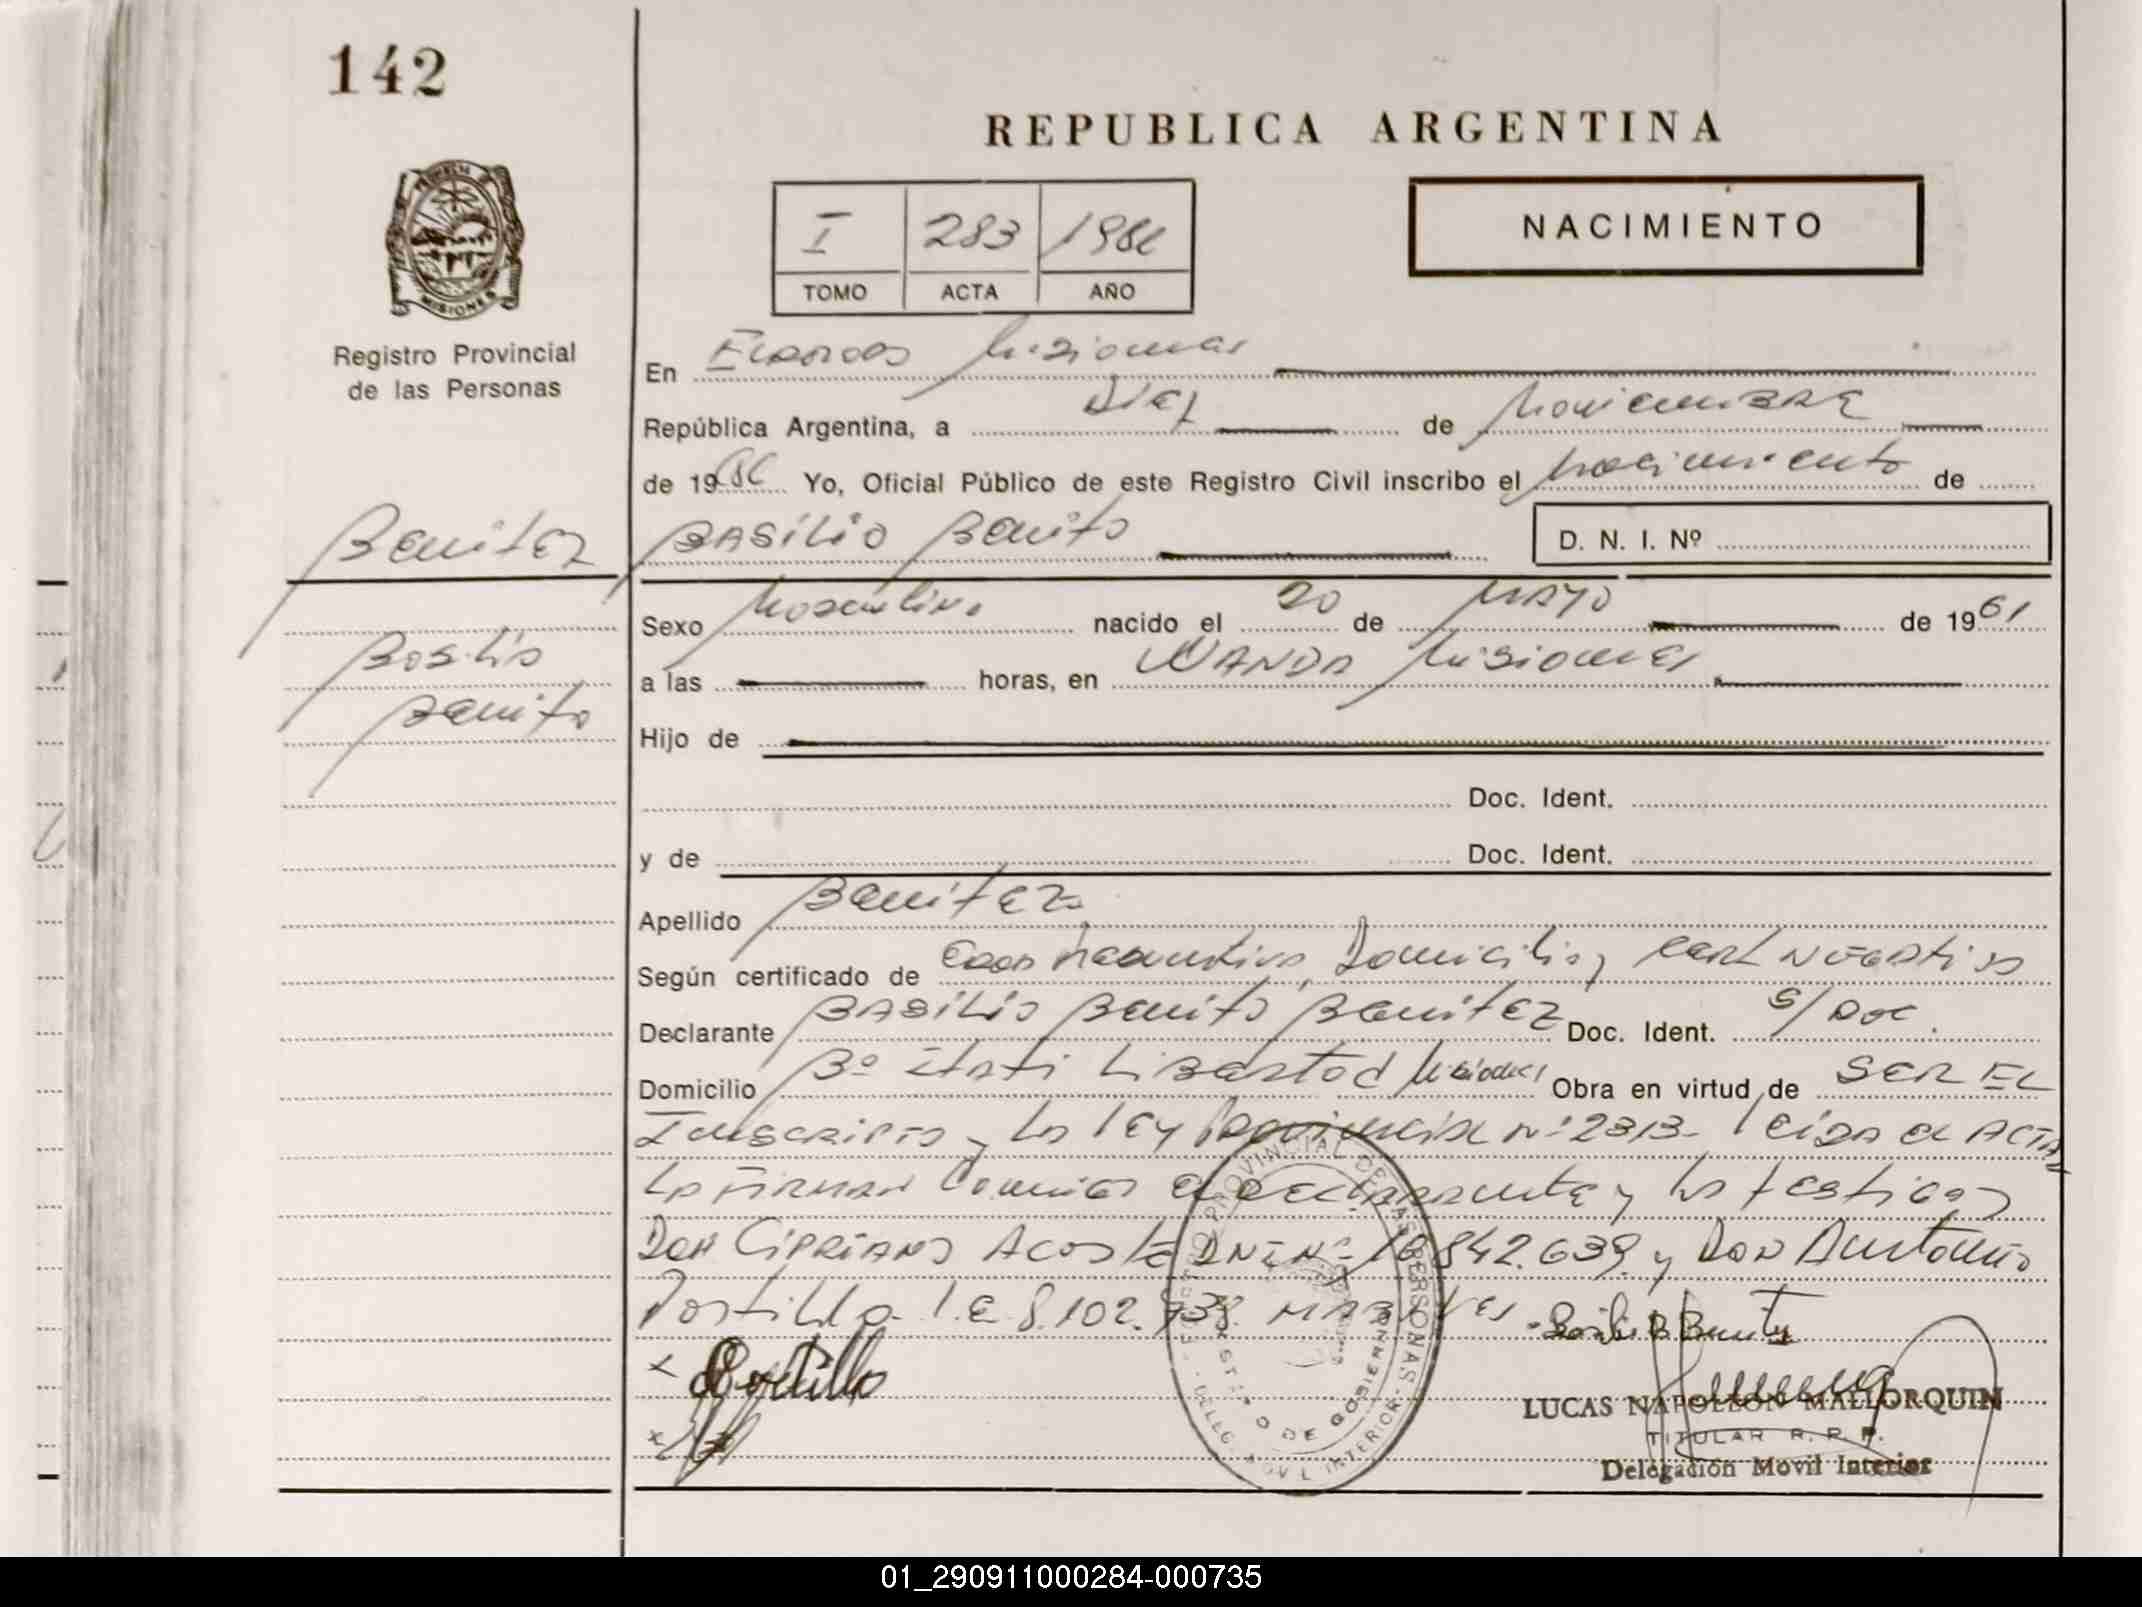 142
REPUBLICA ARGENTINA
NACIMIENTO
I 283 1986
TOMO ACTA AÑO
PROVINCIA
MISIONES
Registro Provincial
de las Personas
En Eldorado Misiones
República Argentina, a Diez de Noviembre
de 1986 Yo, Oficial Público de este Registro Civil inscribo el Nacimiento de
Benitez
BASILIO Benito
D. N. I. Nº
Basilio
Benito
Sexo Masculino nacido el 20 de MAYO de 1961
a las horas, en WANDA Misiones
Hijo de
Doc. Ident.
y de Doc. Ident.
Apellido Benitez
Según certificado de Domicilio y NEGATIVO
Declarante BASILIO Benito Benitez Doc. Ident. S/Doc.
Domicilio Bº Itati Libertad Misiones Obra en virtud de SER EL
Inscripto y la ley Provincial Nº 2313- leida el ACTA
La FIRMAN Conmigo el Declarante y los testigos
Don CIPRIANO Acosta DNI Nº 842.639 y DON Antonio
Portillo L.E 8.102.738
Portillo
LUCAS NAPOLEON MALLORQUIN
TITULAR R. P. P.
Delegación Movil Interior
REGISTRO PROVINCIAL DE LAS PERSONAS
DELEG. MOVIL INTERIOR
MINISTERIO DE GOBIERNO
01_290911000284-000735